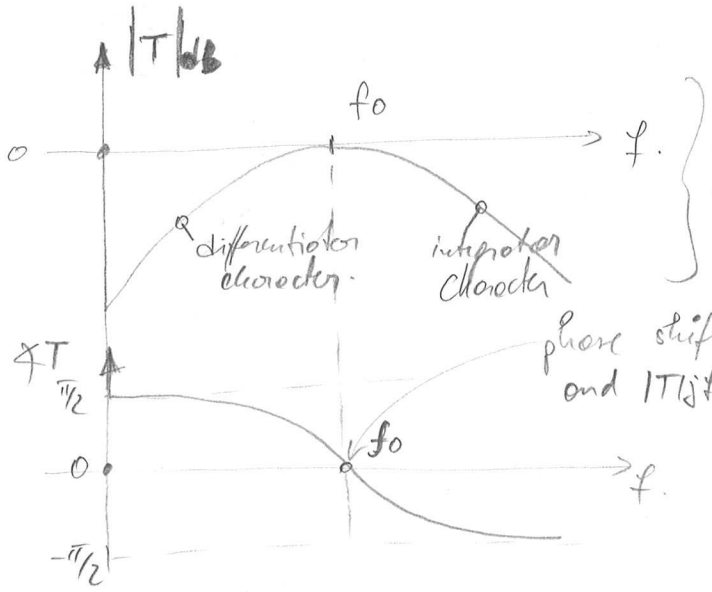 |T|dB
fo
0
f.
differentiator
character.
integrator
character
∢T
π/2
phase shif
and |T|j
fo
0
f.
-π/2